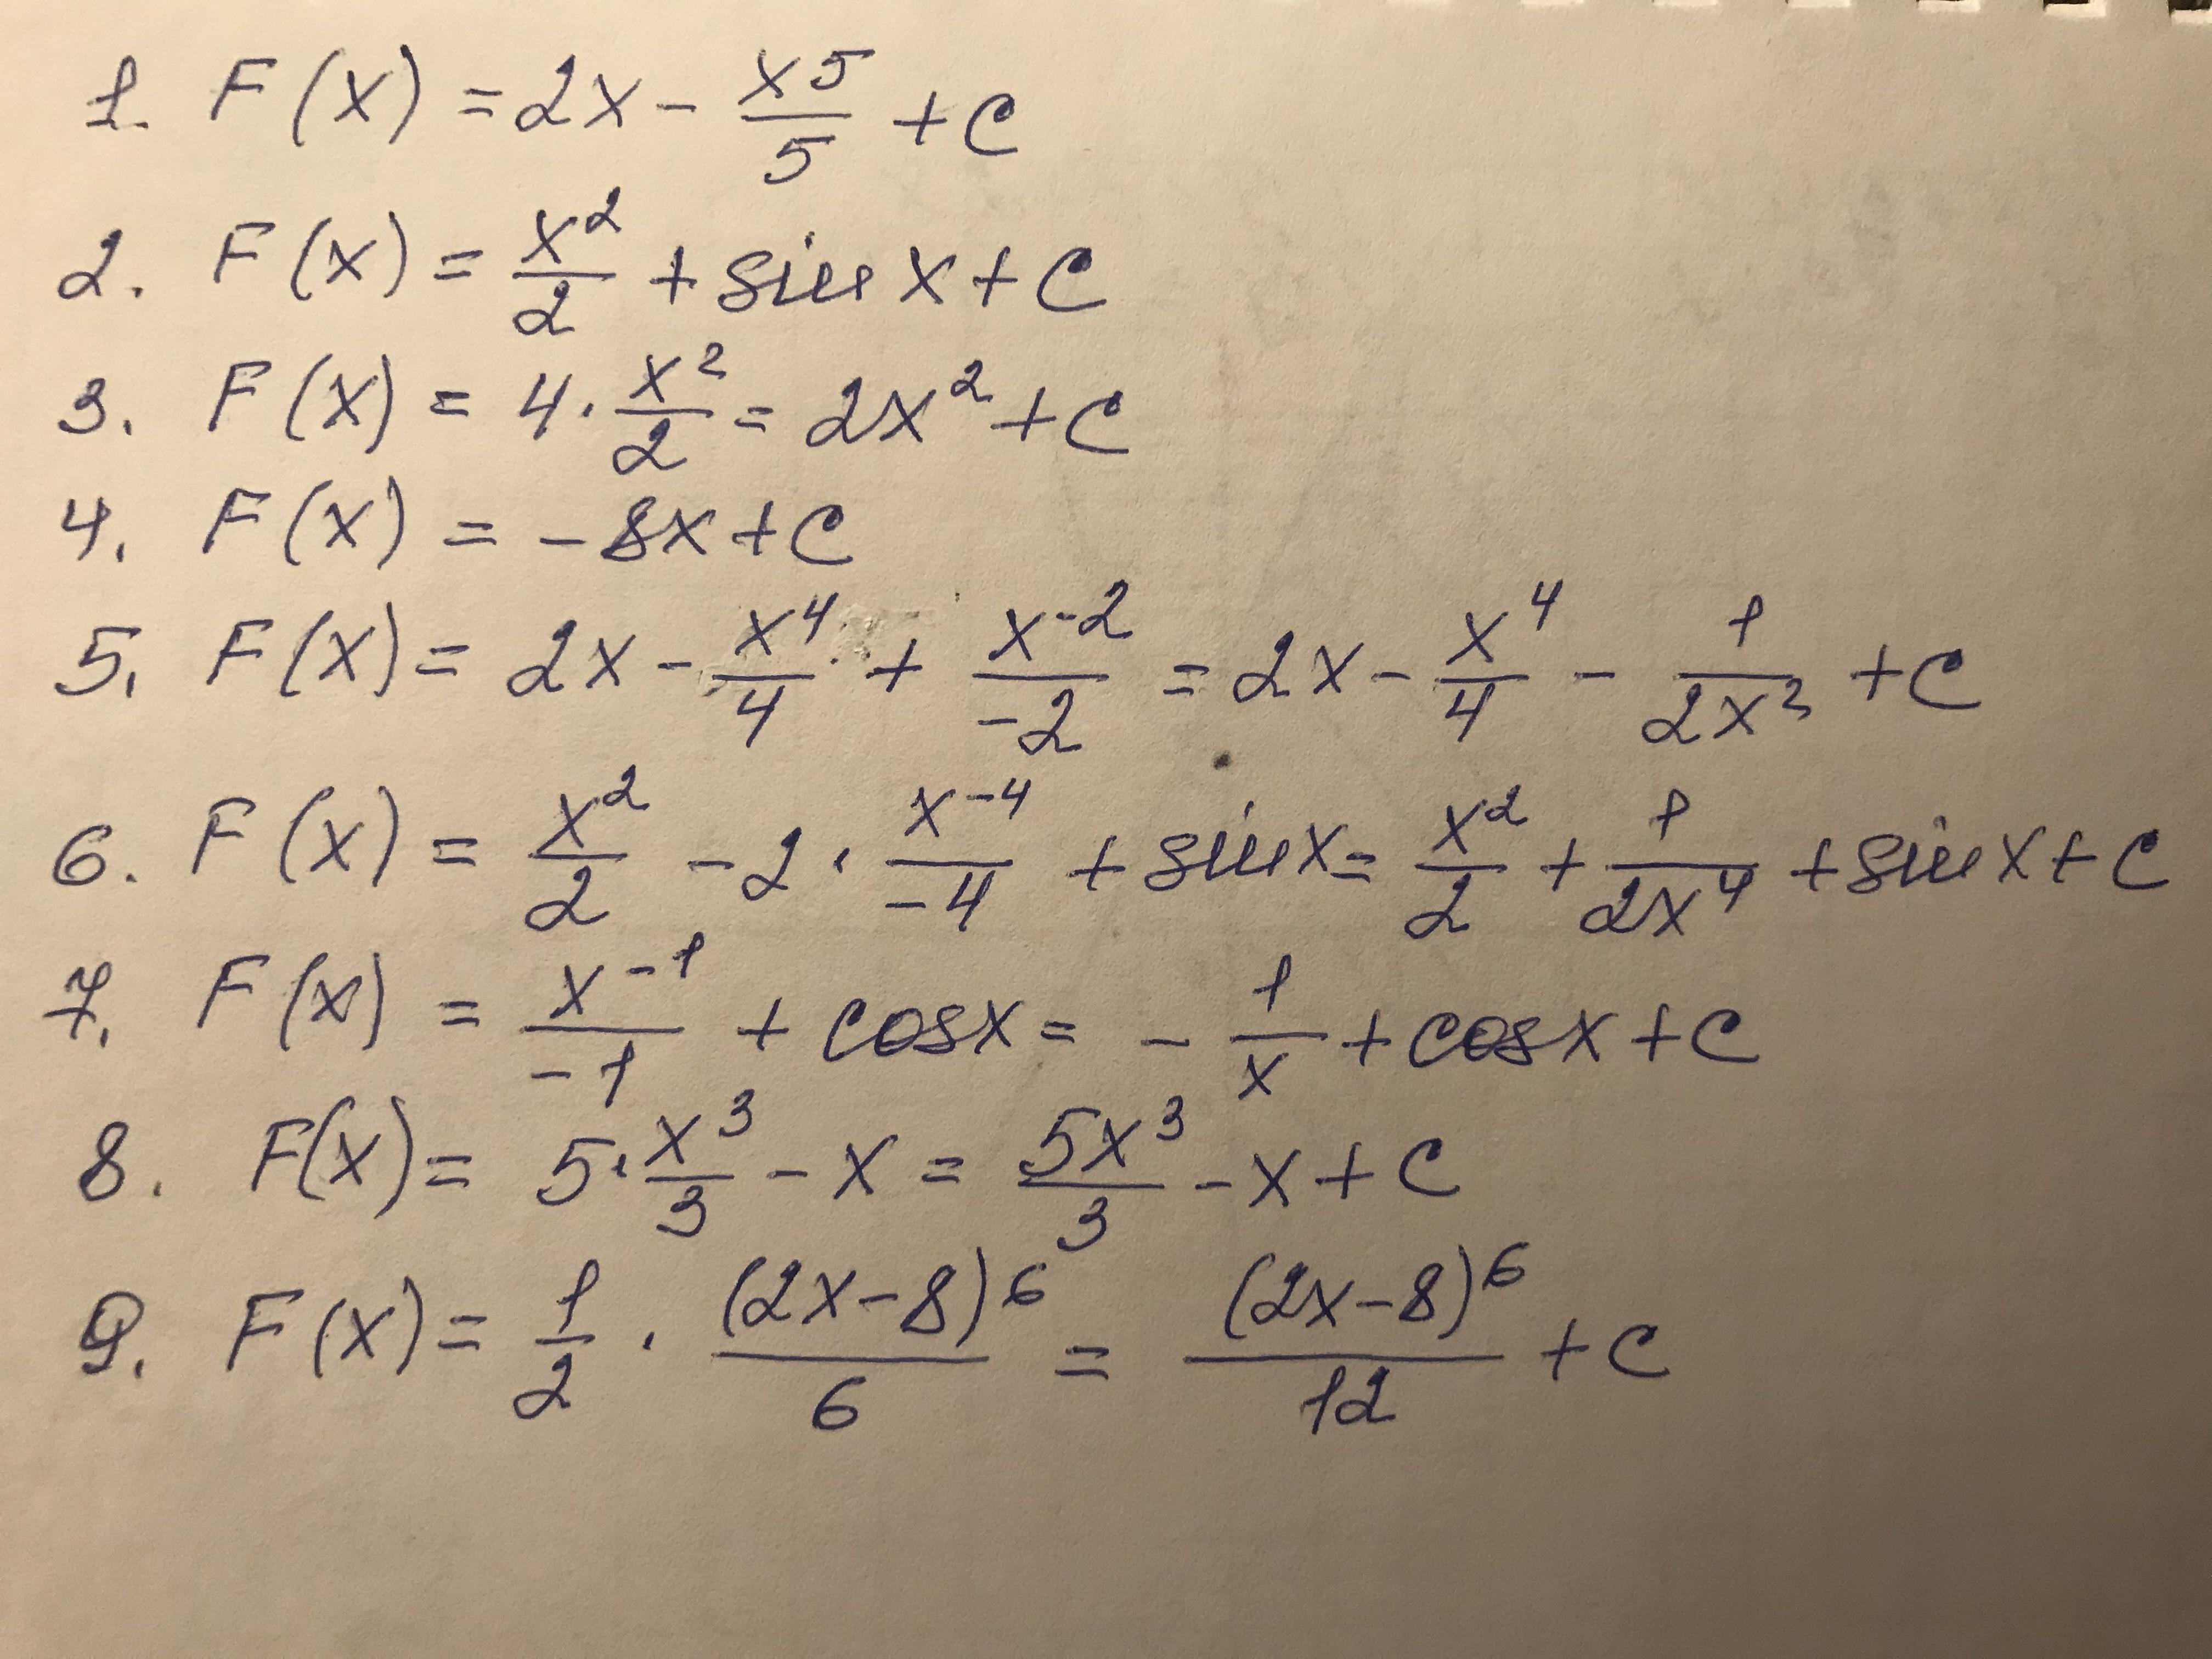 1. F(x) = 2x - x5/5 + C
2. F(x) = x²/2 + sin x + C
3. F(x) = 4 · x²/2 = 2x² + C
4. F(x) = -8x + C
5. F(x) = 2x - x⁴/4 + x⁻²/-2 = 2x - x⁴/4 - 1/2x² + C
6. F(x) = x²/2 - 2 · x⁻⁴/-4 + sin x = x²/2 + 1/2x⁴ + sin x + C
7. F(x) = x⁻¹/-1 + cos x = - 1/x + cos x + C
8. F(x) = 5 · x³/3 - x = 5x³/3 - x + C
9. F(x) = 1/2 · (2x-8)⁶/6 = (2x-8)⁶/12 + C